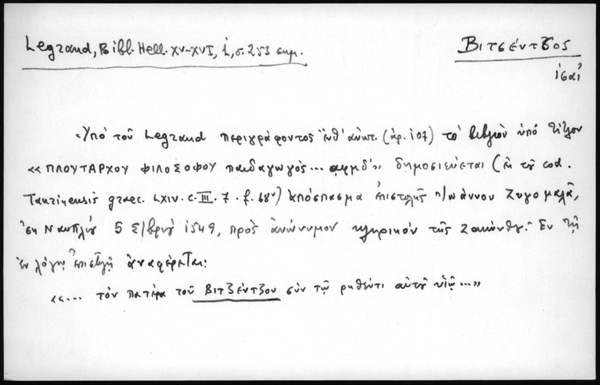 Legrand, Bibl. Hell. XV-XVI, i, σ. 253 σημ.
Βιτσέντζος
Ὑπὸ τοῦ Legrand περιγράφοντος ἐνθ' ἀνωτ. (ἀρ. 107) τὸ βιβλίον ὑπὸ τίτλον
«ΠΛΟΥΤΑΡΧΟΥ ΦΙΛΟΣΟΦΟΥ παιδαγωγὸς... αφμδ´» δημοσιεύεται (ἐκ τοῦ cod.
Taurinensis graec. LXIV. C. III. 7. f. 68ᵛ) ἀπόσπασμα ἐπιστολῆς Ἰωάννου Ζυγομαλᾶ,
ἐκ Ναυπλίου 5 Σ/βρίου 1549, πρὸς ἀνώνυμον κληρικὸν τῆς Ζακύνθου. Ἐν τῇ
ἐν λόγῳ ἐπιστολῇ ἀναφέρεται:
«... τὸν πατέρα τοῦ ΒΙΤΖΕΝΤΖΟΥ σὺν τῷ ῥηθέντι αὐτοῦ υἱῷ...»